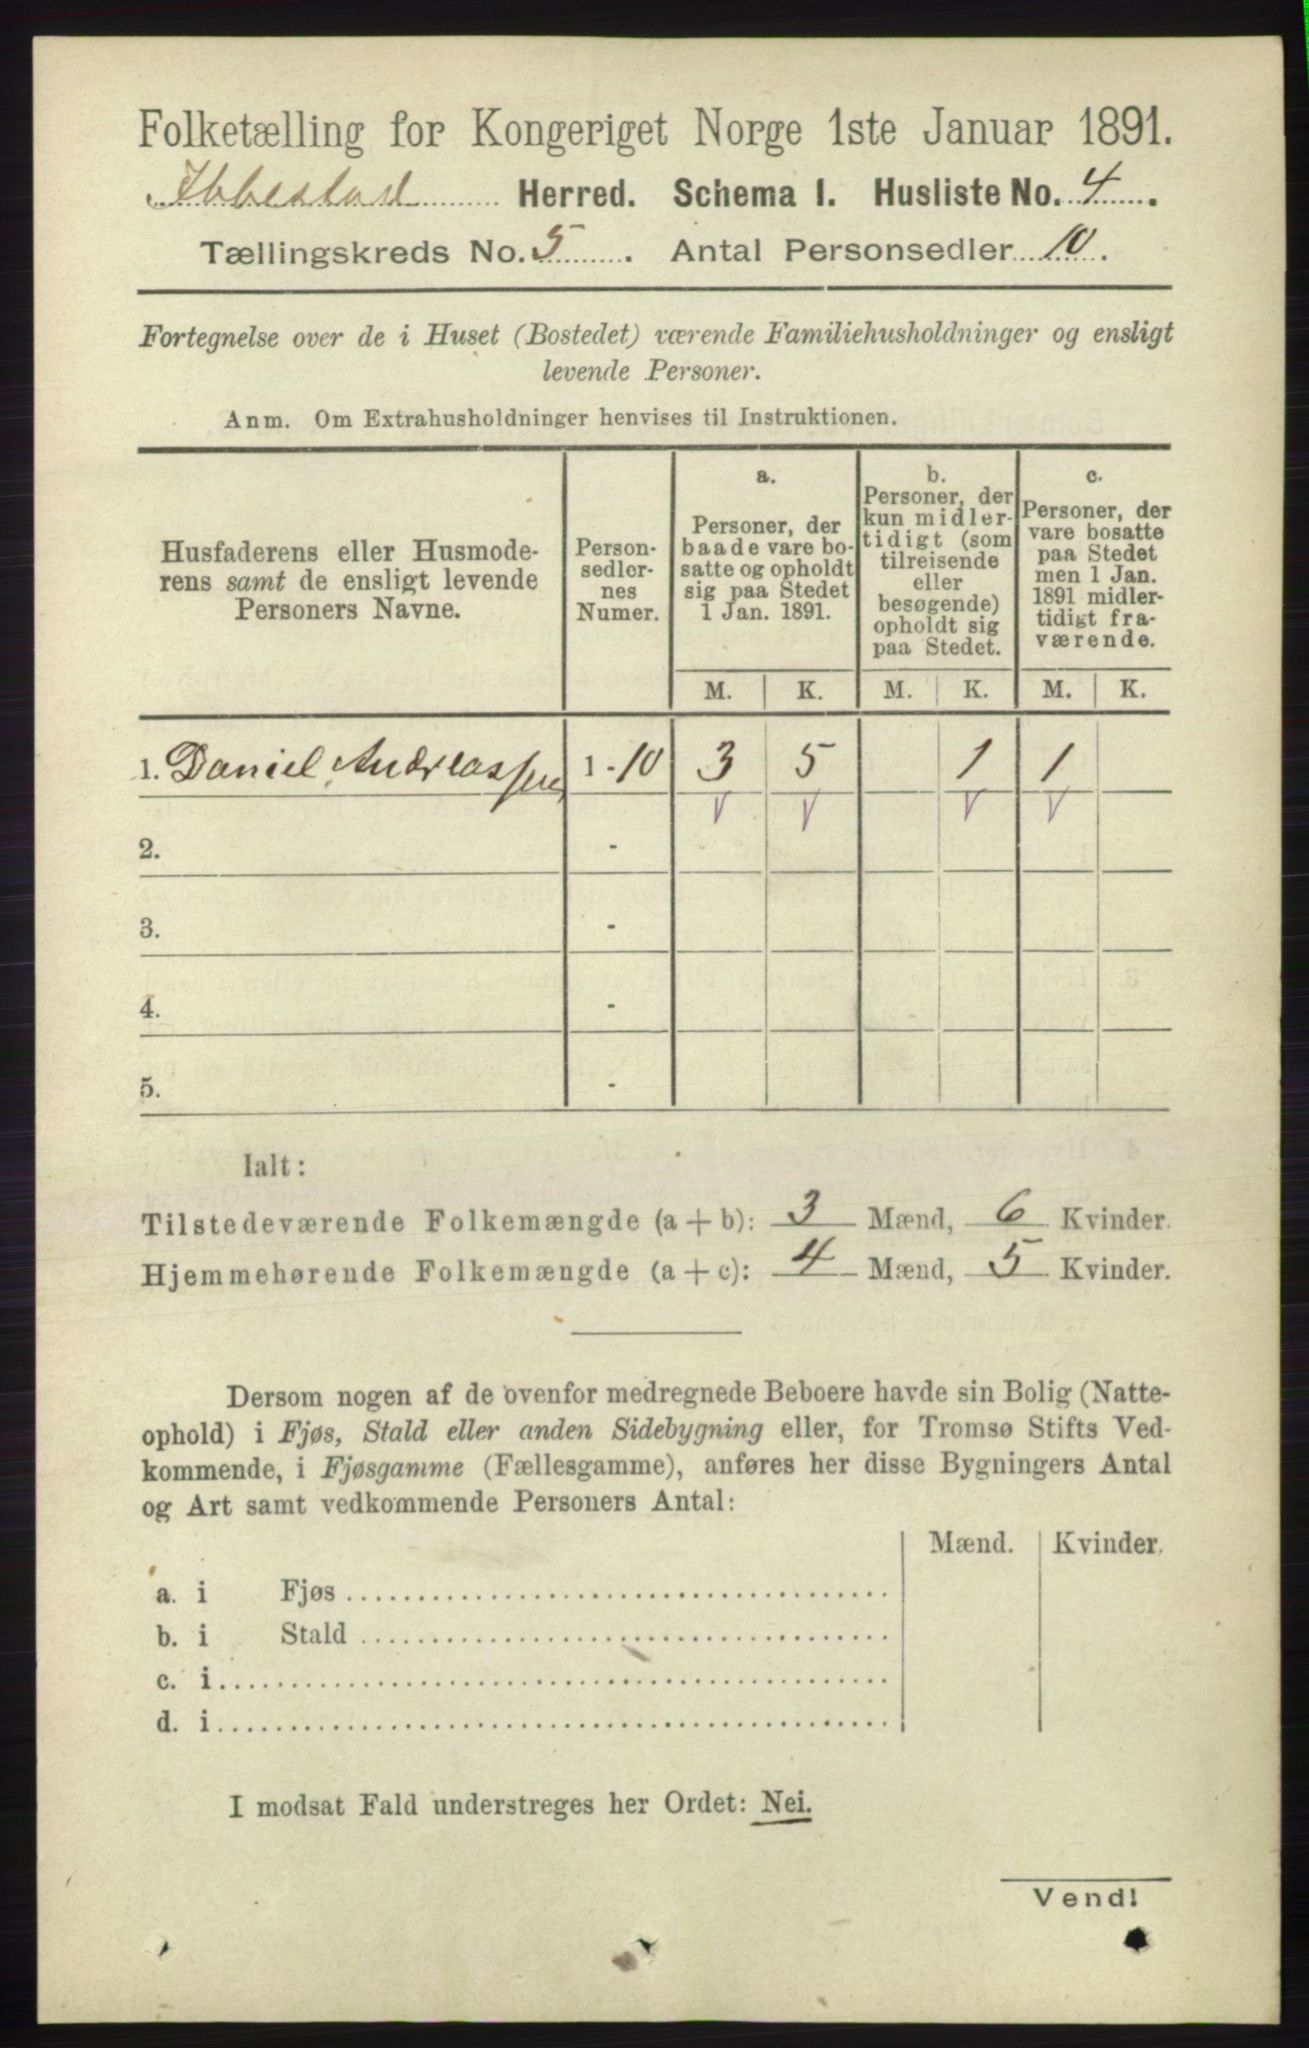 Folketælling for Kongeriget Norge 1ste Januar 1891.
Ibbestad Herred. Schema I. Husliste No. 4.
Tællingskreds No. 5. Antal Personsedler 10.
Fortegnelse over de i Huset (Bostedet) værende Familiehusholdninger og ensligt
levende Personer.
Anm. Om Extrahusholdninger henvises til Instruktionen.
Husfaderens eller Husmode-
rens samt de ensligt levende
Personers Navne.
Person-
sedler-
nes
Numer.
a.
Personer, der
baade vare bo-
satte og opholdt
sig paa Stedet
1 Jan. 1891.
b.
Personer, der
kun midler-
tidigt (som
tilreisende
eller
besøgende)
opholdt sig
paa Stedet.
c.
Personer, der
vare bosatte
paa Stedet
men 1 Jan.
1891 midler-
tidigt fra-
værende.
M. K. M. K. M. K.
1. Daniel Andreassen 1 - 10 3 5 1 1
V V V V
2. -
3. -
4. -
5. -
Ialt:
Tilstedeværende Folkemængde (a + b): 3 Mænd, 6 Kvinder.
Hjemmehørende Folkemængde (a + c): 4 Mænd, 5 Kvinder.
Dersom nogen af de ovenfor medregnede Beboere havde sin Bolig (Natte-
ophold) i Fjøs, Stald eller anden Sidebygning eller, for Tromsø Stifts Ved-
kommende, i Fjøsgamme (Fællesgamme), anføres her disse Bygningers Antal
og Art samt vedkommende Personers Antal:
Mænd. Kvinder.
a. i Fjøs
b. i Stald
c. i
d. i
I modsat Fald understreges her Ordet: Nei.
Vend!